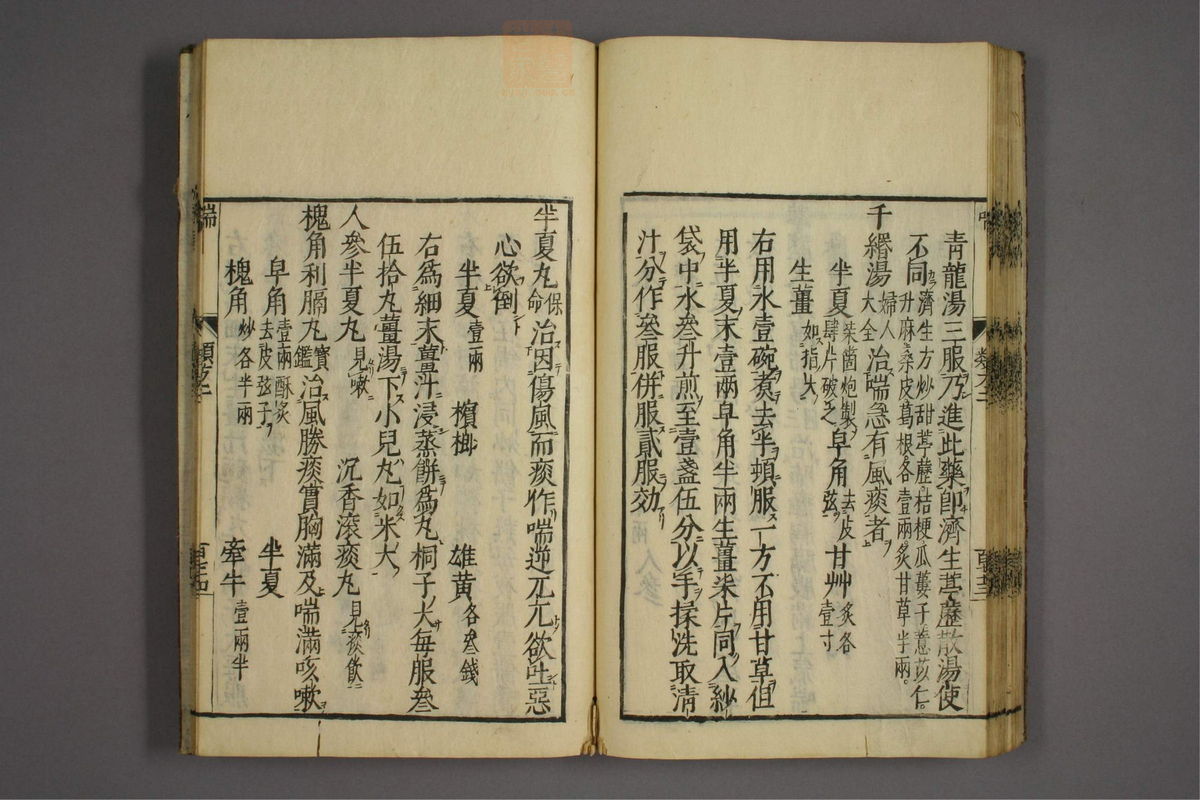 青龍湯三服乃進此藥即濟生葶藶散湯使
不同濟生方炒甜葶藶桔梗瓜蔞子薏苡仁
升麻桑皮葛根各壹兩炙甘草半兩
千緡湯婦人大全治喘急有風痰者
半夏柒箇炮製肆片破之 皁角去皮弦 甘艸炙各壹寸
生薑如指大
右用水壹碗煮去半頓服一方不用甘草但
用半夏末壹兩皁角半兩生薑柒片同入紗
袋中水叄升煎至壹盞伍分以手揉洗取清
汁分作叄服併服貳服効
半夏丸保命治因傷風而痰作喘逆兀兀欲吐惡
心欲倒
半夏壹兩 檳榔 雄黃各叄錢
右為細末薑汁浸蒸餅為丸桐子大每服叄
伍拾丸薑湯下小兒丸如米大
人參半夏丸見嗽 沉香滾痰丸見痰飲
槐角利膈丸寶鑑治風勝痰實胸滿及喘滿咳嗽
皁角壹兩酥炙去皮弦子 半夏
槐角炒各半兩 牽牛壹兩半
喘